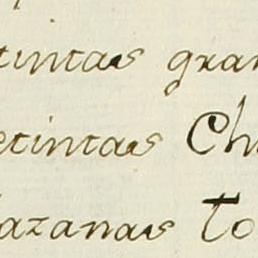 tintas gran
etintas Ch
lazanas To